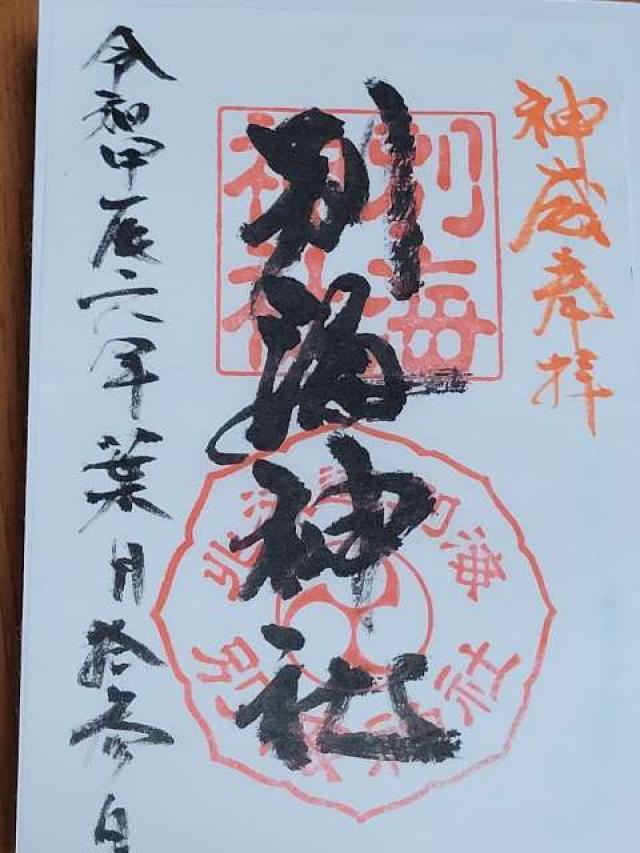 神威奉拝
別海神社
別海
神社
令和甲辰六年葉月拾参日